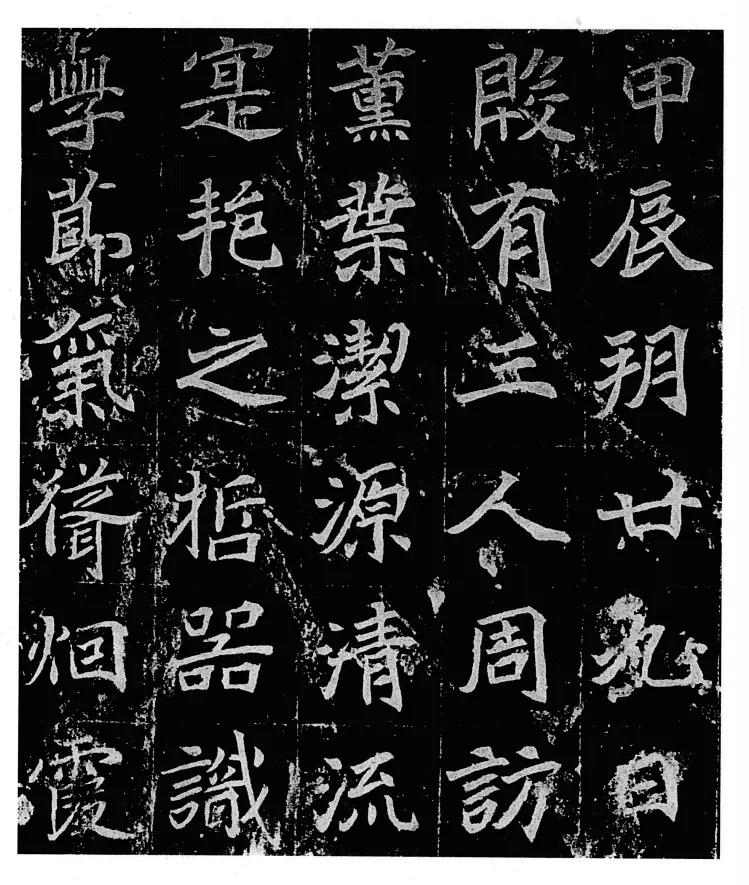 甲辰玥廿九日
殷有三人周訪
薰葉潔源清流
寔艳之哲器識
學節氣聳烟霞